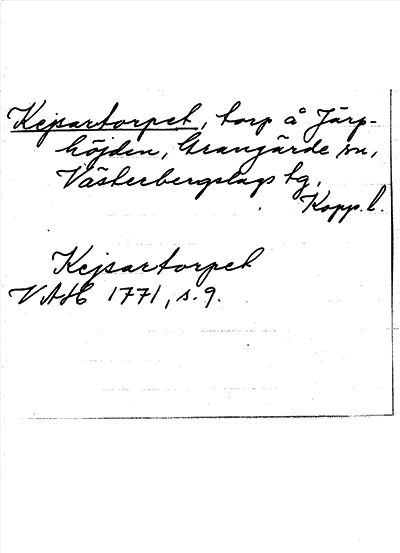 Kejsartorpet, torp å Järp-
höjden, Grangärde sn,
Västerbergslags tg,
Kopp. l.
Kejsartorpet
VAH 1771, s. 9.